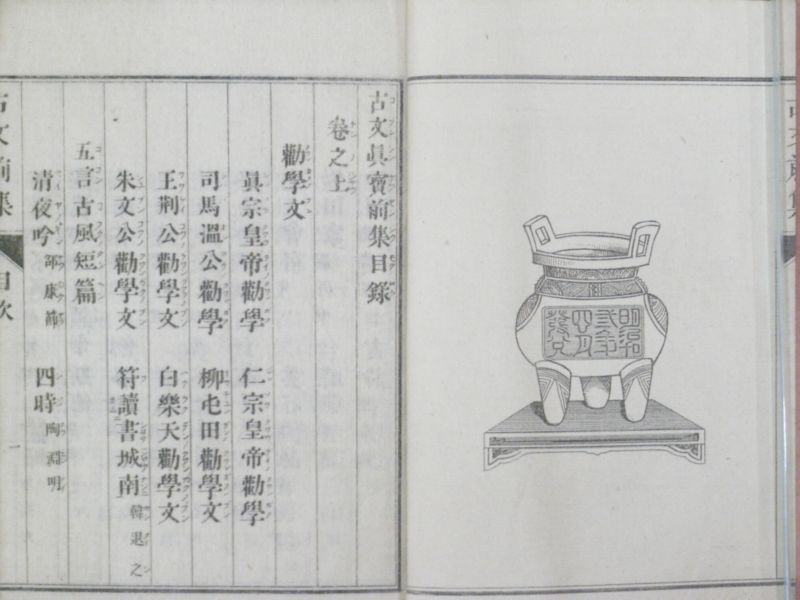 明治
四月
古文眞寶前集目錄
卷之上
勸學文
眞宗皇帝勸學 仁宗皇帝勸學
司馬溫公勸學 柳屯田勸學文
王荆公勸學文 白樂天勸學文
朱文公勸學文 符讀書城南 韓退之
五言古風短篇
清夜吟 邵康節 四時 陶淵明
古文前集 目次 一